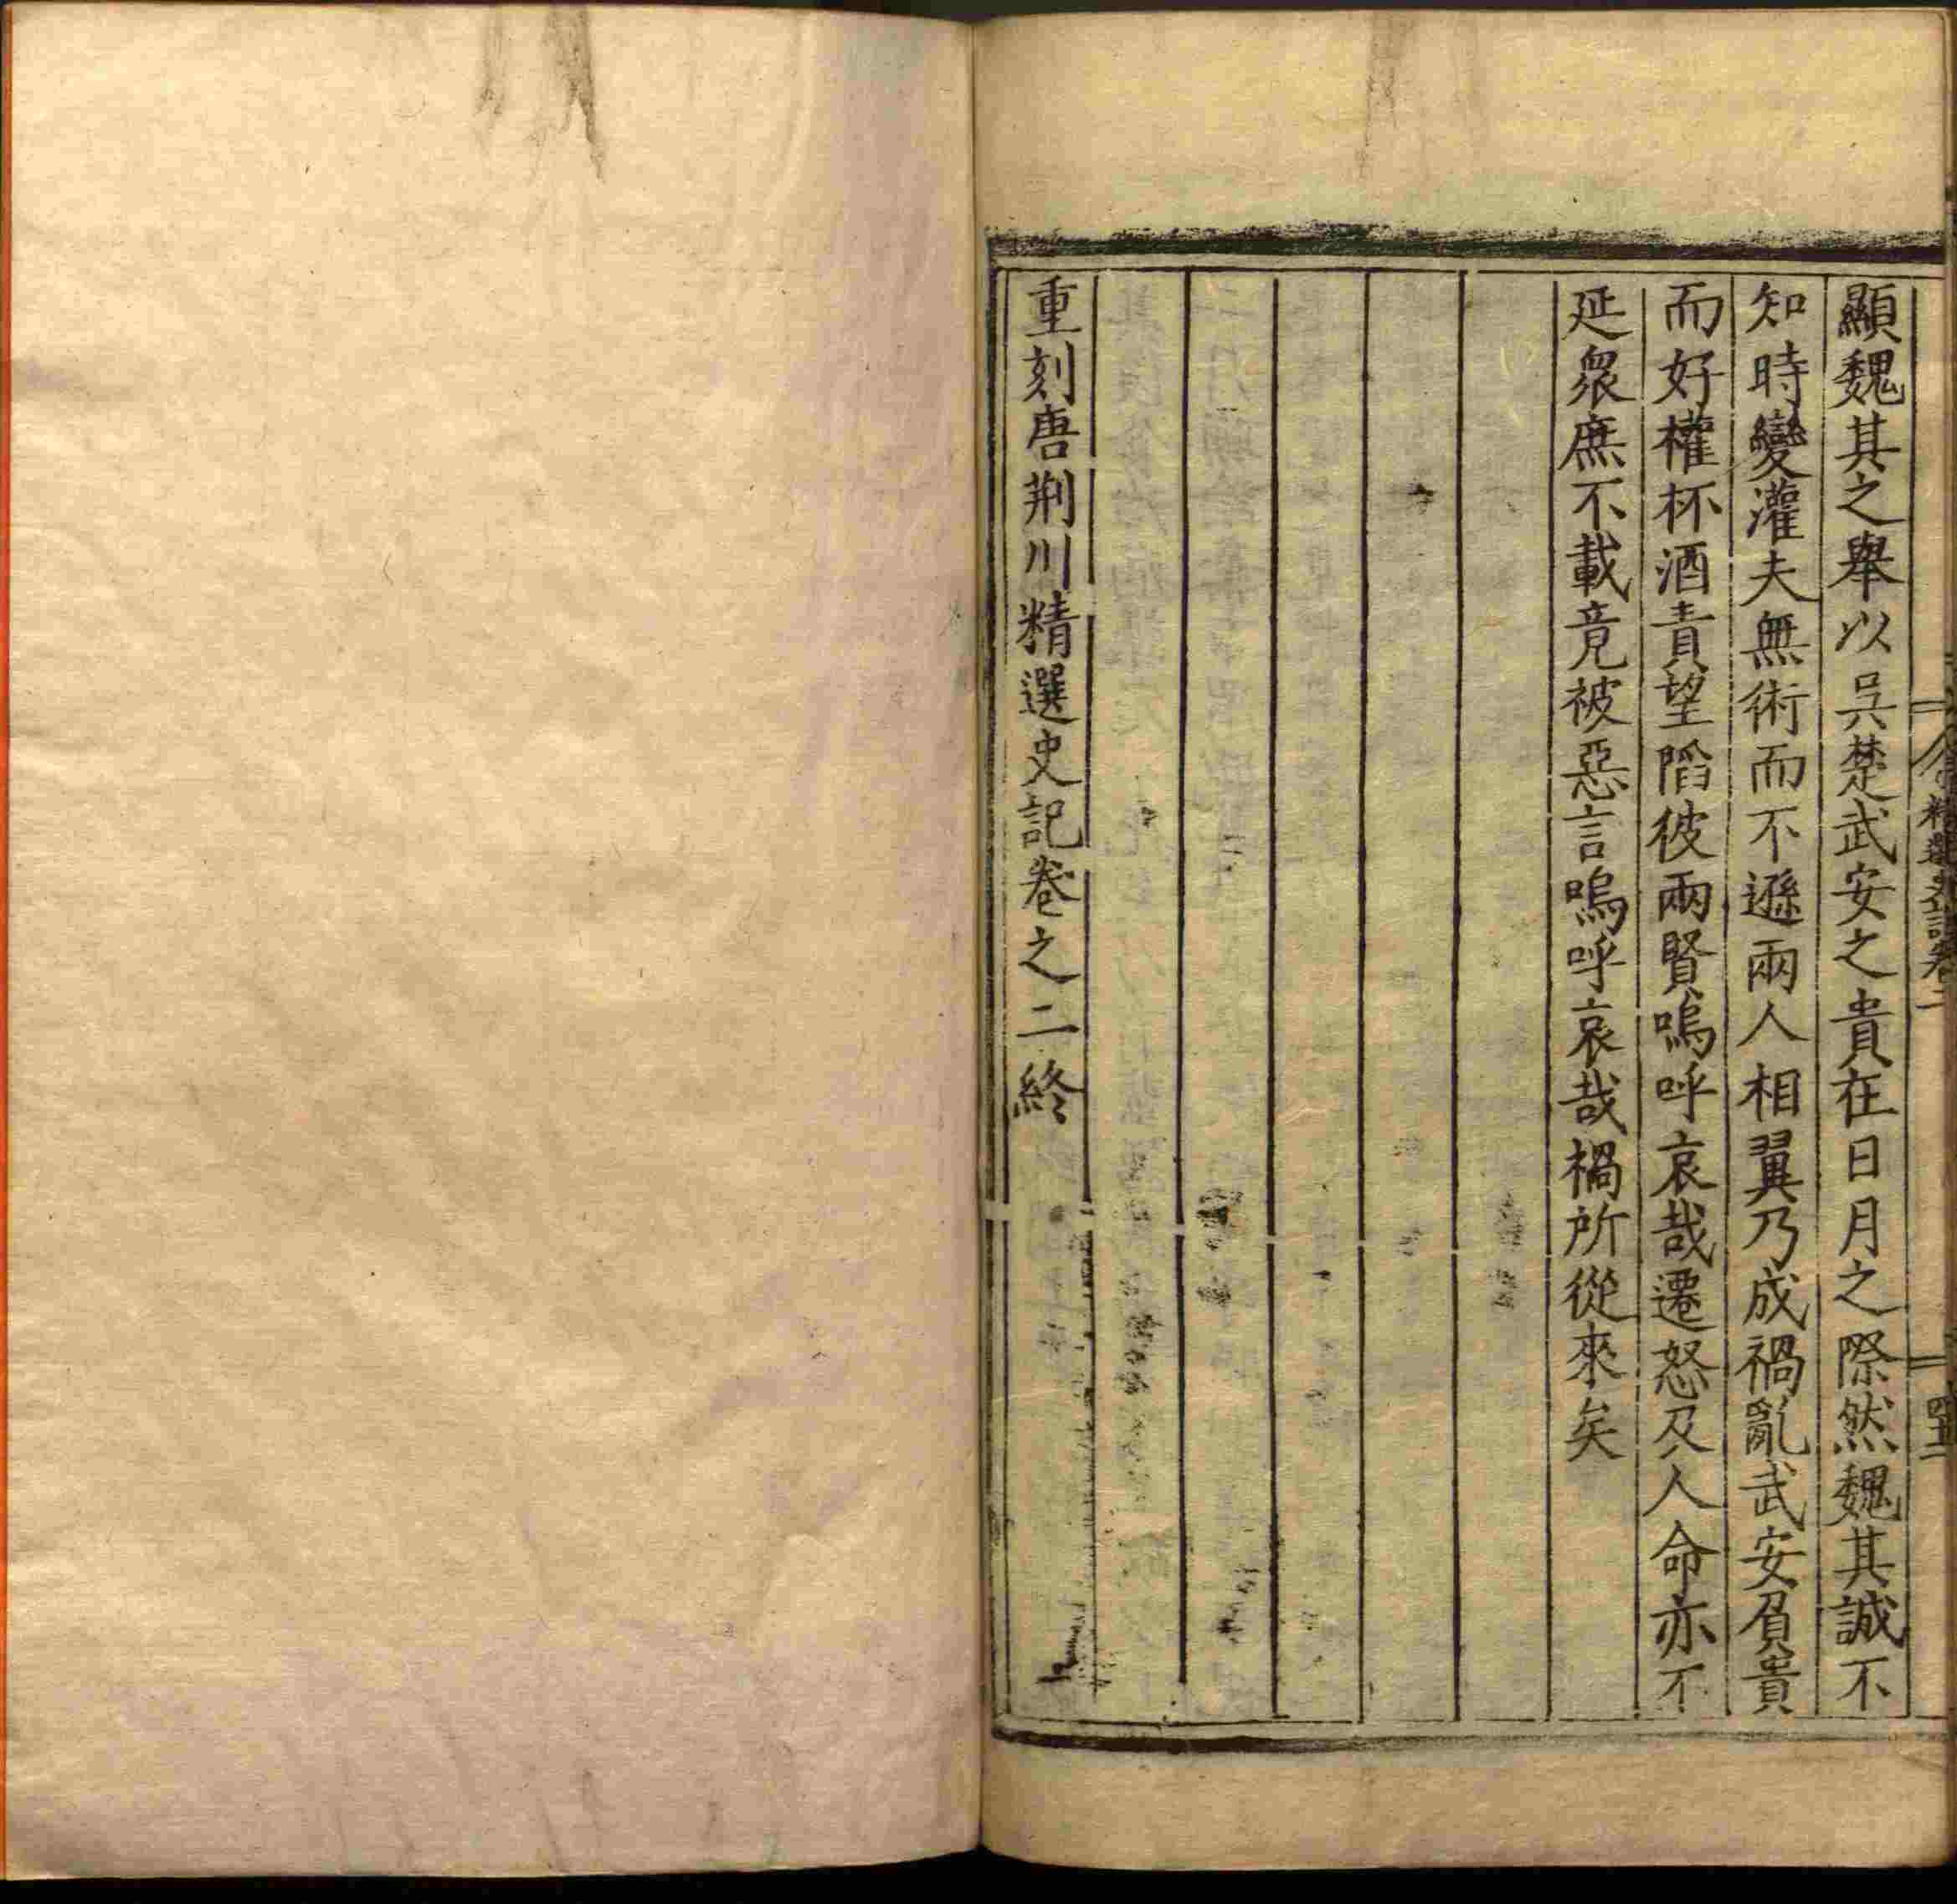 顯魏其之舉以吳楚武安之貴在日月之際然魏其誠不
知時變灌夫無術而不遜兩人相翼乃成禍亂武安負貴
而好權杯酒責望陷彼兩賢嗚呼哀哉遷怒及人命亦不
延衆庶不載竟被惡言嗚呼哀哉禍所從來矣
重刻唐荆川精選史記卷之二終